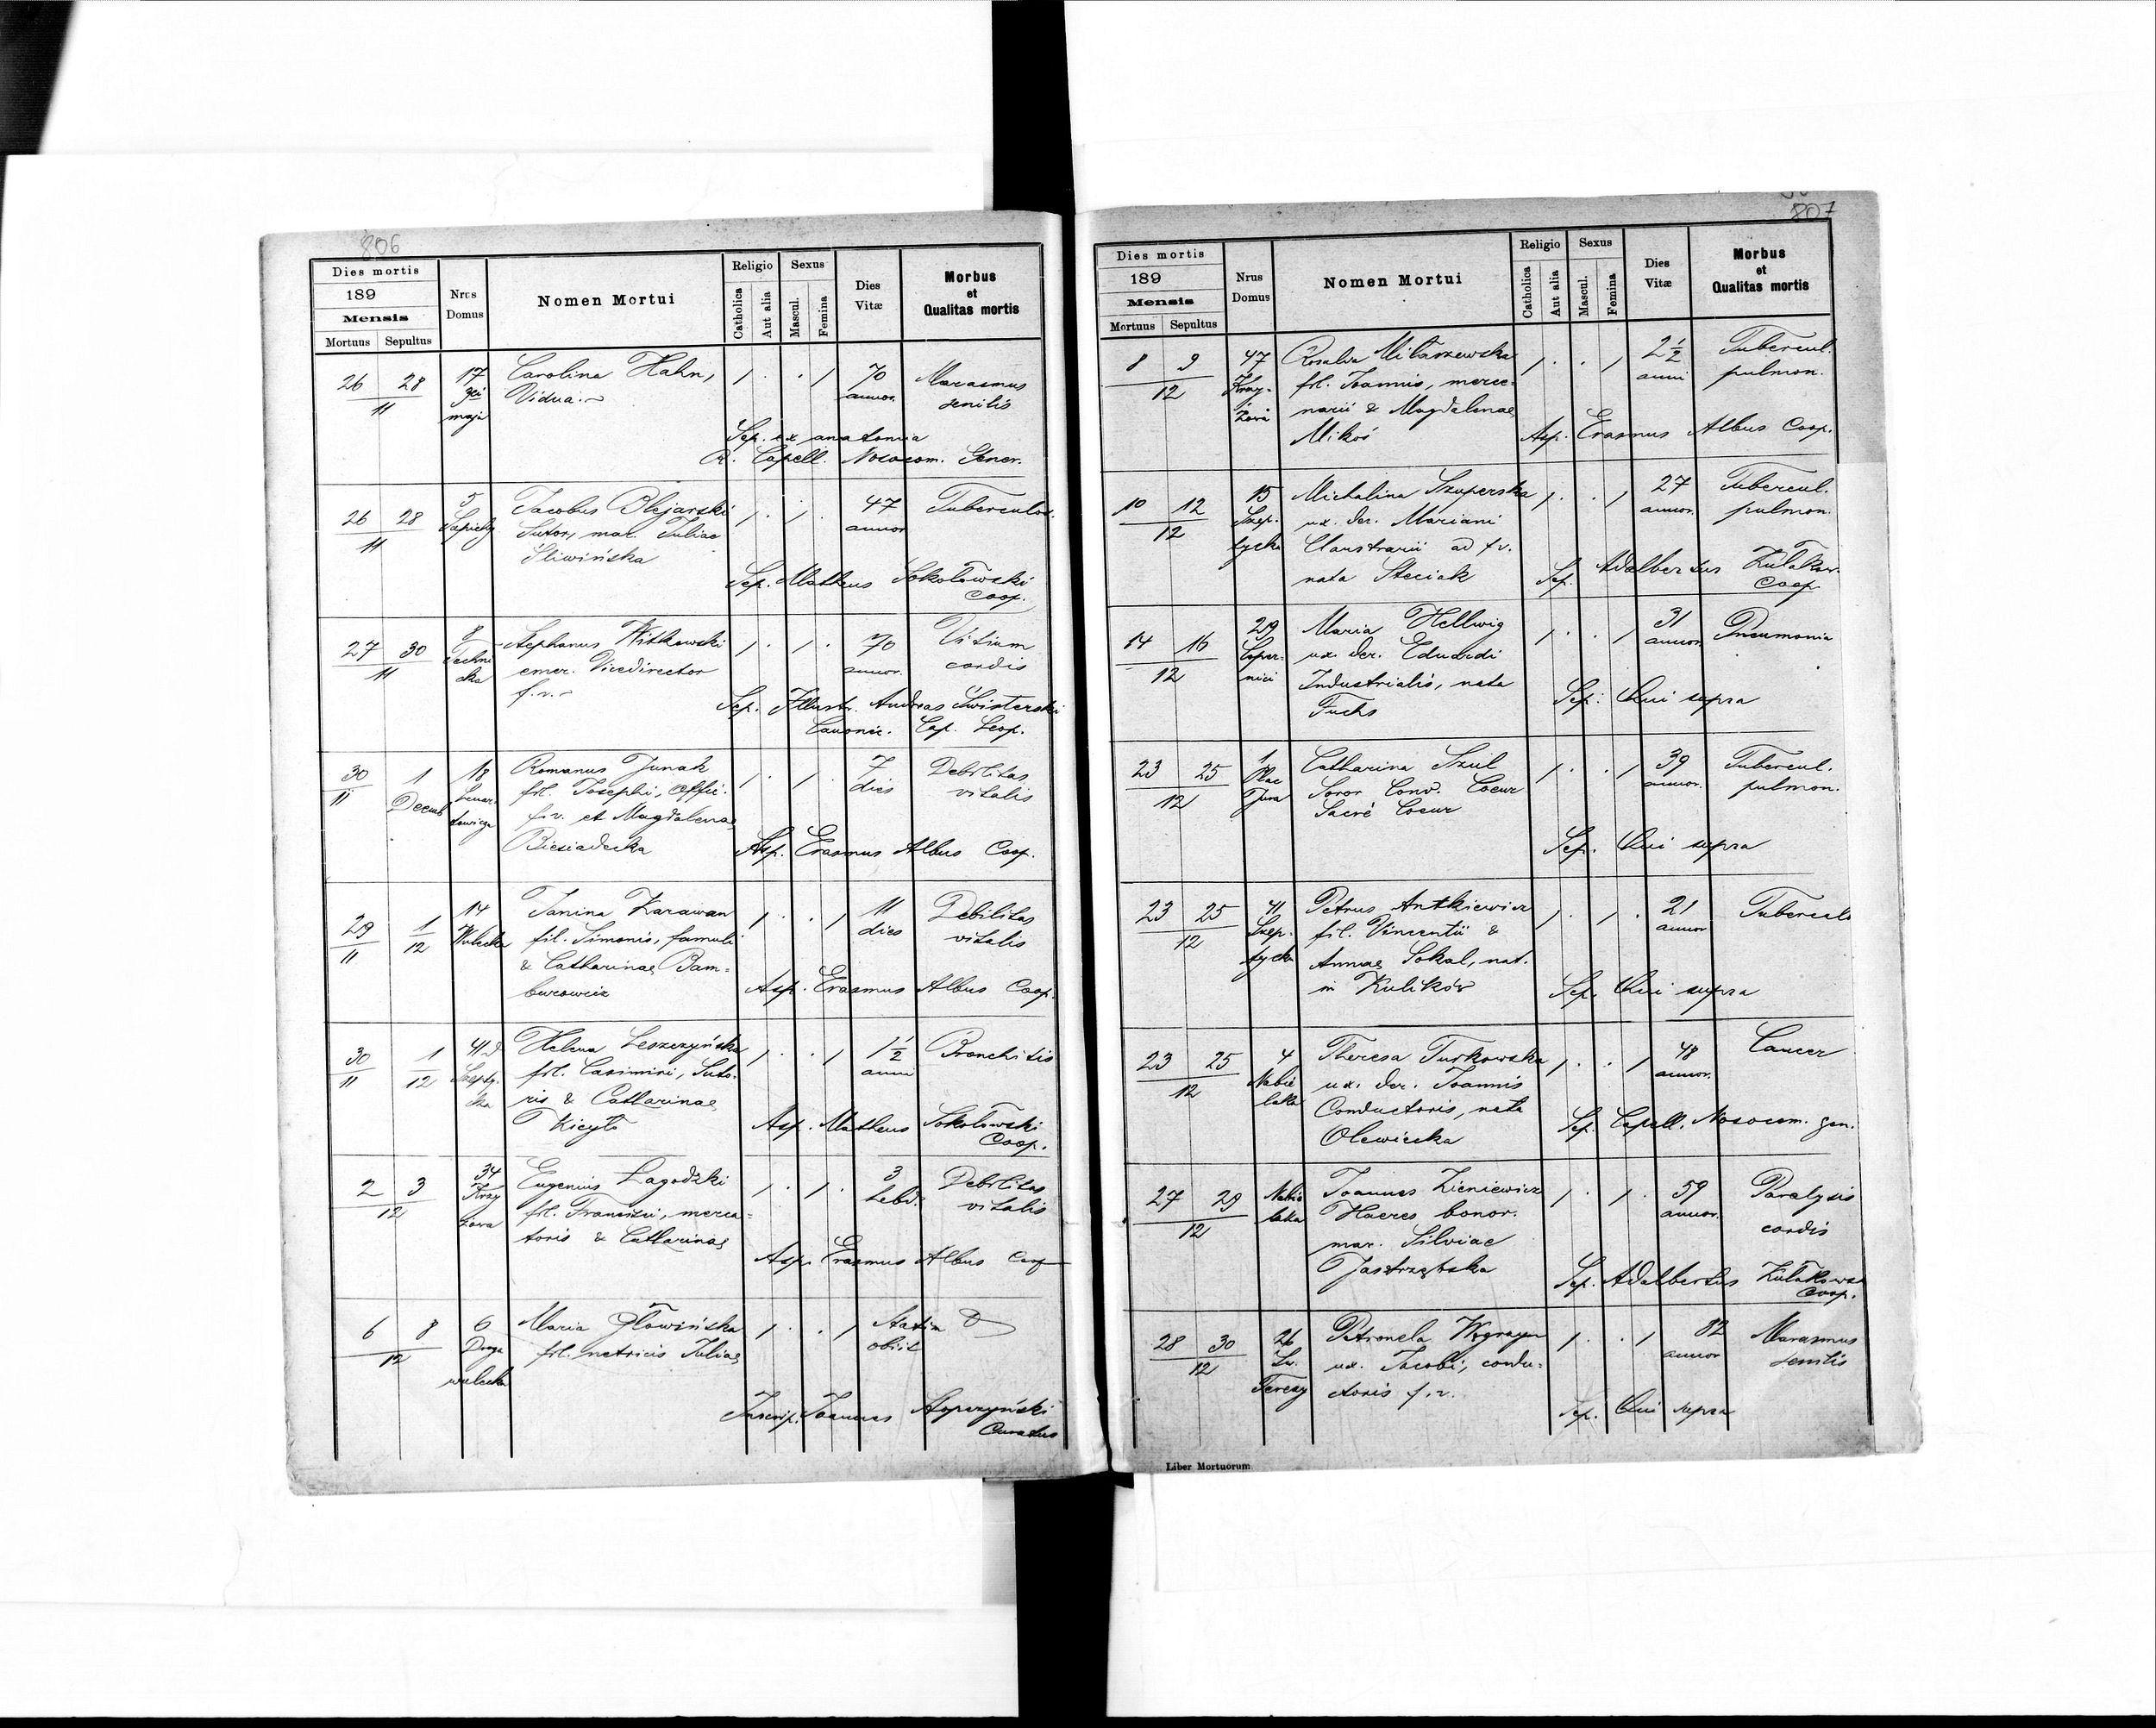 806
Dies mortis
189
Mensis
Mortuus Sepultus
Nrus Domus
Nomen Mortui
Religio
Catholica
Aut alia
Sexus
Mascul.
Femina
Dies Vitæ
Morbus et Qualitas mortis
26 28 17 Carolina Hahn, / . . / 70 Marasmus
11 3ei maja Vidua.~ annor. senilis
Sep. ex anatomia
R. Capell. Nosocom. Gener.
26 28 5 Jacobus Blejarski / . / . 47 Tuberculos.
11 Sapiehy Sutor, mar. Juliae annor
Śliwińska
Sep. Matheus Sokołowski
Coop.
27 30 8 Stephanus Witkowski / . / . 70 Vitium
11 Techni cka emer. Vicedirector annor. cordis
f. v. ~
Sep. Illustr. Andreas Świsterski
Canonic. Cap. Leop.
30 1 18 Romanus Junak / . / . 7 Debilitas
11 Decemb Lenar- towicza fil. Josephi, offic. dies vitalis
f. v. et Magdalenae
Biesiadecka
Asp. Erasmus Albus Coop.
29 1 14 Janina Karawan / . . / 11 Debilitas
11 12 Wulecka fil. Simonis, famuli dies vitalis
& Catharinae Bam=
burowicz
Asp. Erasmus Albus Coop.
30 1 41 d Helena Leszczyńska / . . / 1 1/2 Bronchitis
11 12 Szepty- cka fil. Casimiri, Suto- anni
ris & Catharinae
Kicyło
Asp. Matheus Sokołowski
Coop.
2 3 34 Eugenius Łagodzki / . / . 3 Debilitas
12 Krzy żowa fil. Francisci, merca= hebd. vitalis
toris & Catharinae
Asp. Erasmus Albus Coop
6 8 6 Maria Głowińska / . . / Statim
12 Droga wulecka fil. netricis Juliae obiit
Inscrip. Joannes Stopczyński
Curatus
807
Dies mortis
189
Mensis
Mortuus Sepultus
Nrus Domus
Nomen Mortui
Religio
Catholica
Aut alia
Sexus
Mascul.
Femina
Dies Vitæ
Morbus et Qualitas mortis
8 9 47 Rosalia Milaszewska / . . / 2 1/2 Tubercul.
12 Krzy- żowa fil. Joannis, merce= anni pulmon.
narii & Magdalenae
Mikoś
Asp. Erasmus Albus Coop.
10 12 15 Michalina Szuperska / . . / 27 Tubercul.
12 Szep- tycka ux. der. Mariani annor. pulmon.
Claustrarii ad f. v.
nata Steciak
Sep. Adalbertus Kułakow.
Coop
14 16 29 Maria Hellwig / . . / 31 Pneumonia
12 Coper- nici ux. der. Eduardi annor.
Industrialis, nata
Fuchs
Sep. Qui supra
23 25 1 Catharina Szul / . . / 39 Tubercul.
12 Plac Jura Soror Conv. Coeur annor. pulmon.
Sacré Coeur
Sep. Qui supra
23 25 41 Petrus Antkiewicz / . / . 21 Tubercul
12 Szep- tycka fil. Vincentii & annor
Annae Sokal, nat.
in Kulików
Sep. Qui supra
23 25 4 Theresa Turkowska / . . / 48 Cancer
12 Nabie laka ux. der. Joannis annor.
Conductoris, nata
Olewiecka
Sep. Capell. Nosocom. gen.
27 29 Nabie laka Joannes Zieniewicz / . / . 59 Paralysis
12 Haeres bonor. annor. cordis
mar. Silviae
Jastrzębska
Sep. Adalbertus Kułakows
Coop.
28 30 26 Petronela Węgrzyn / . . / 82 Marasmus
12 Św. Teresy ux. Jacobi, condu= annor senilis
ctoris f. v.
Sep. Qui supra
Liber Mortuorum